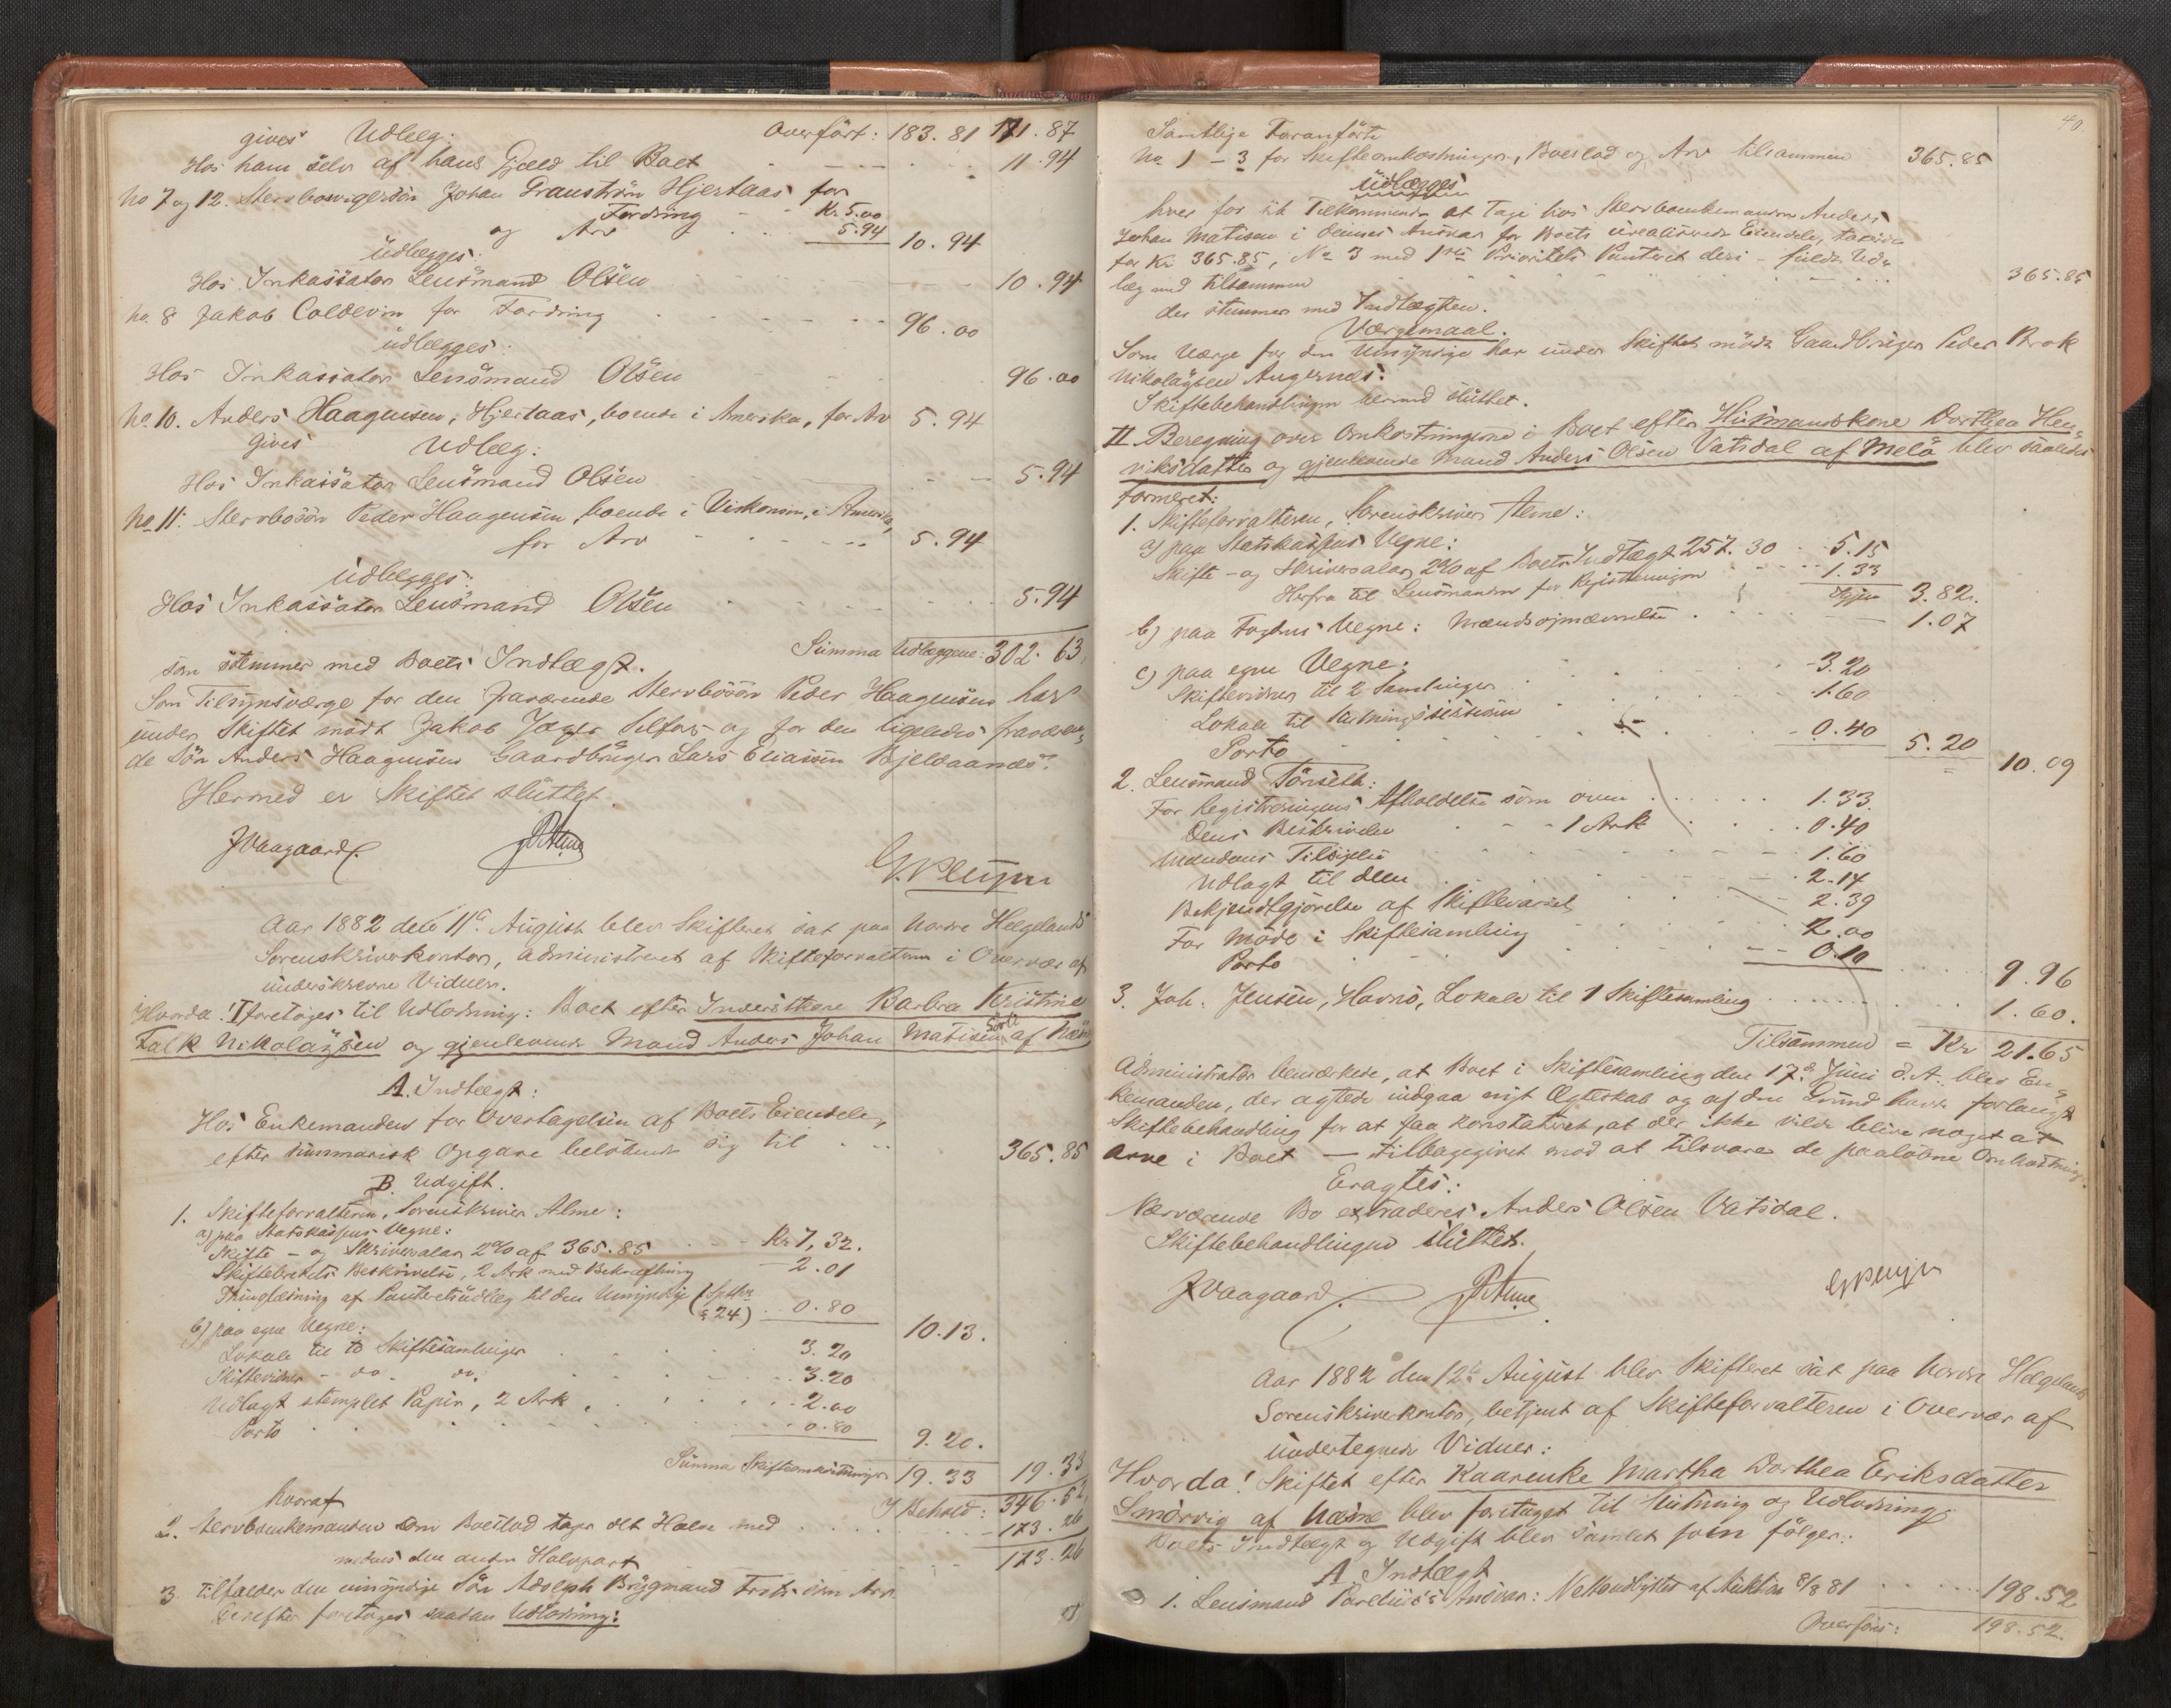 Overført: 183.81 171.87
gives Udlæg:
Hos ham selv af hans Gjæld til Boet 11.94
No 7 og 12. Stervbosvigersøn Johan Granström Hjertaas for
Fordring Kr. 5.00
og Arv 5.94 10.94
udlægges:
Hos Inkassator Lensmand Olsen 10.94
No. 8 Jakob Coldevin for Fordring 96.00
udlægges:
Hos Inkassator Lensmand Olsen 96.00
No. 10. Anders Haagensen, Hjertaas, boende i Amerika, for Arv 5.94
gives Udlæg:
Hos Inkassator Lensmand Olsen 5.94
No 11. Stervbosøn Peder Haagensen, boende i Viskonsin, i Amerika,
for Arv 5.94
udlægges:
Hos Inkassator Lensmand Olsen 5.94
Summa Udlæggene: 302.63
som stemmer med Boets Indtægt.
Som Tilsynsværge for den fraværende Stervbosøn Peder Haagensen har
under Skiftet mødt Jakob Jæger Selfors og for den ligeledes fraværen-
de Søn Anders Haagensen Gaardbruger Lars Eliassen Bjeldaanæs.
Hermed er Skiftet sluttet.
J Vaagaard.
Aar 1882 den 11te August blev Skifteret sat paa Nordre Helgelands
Sorenskriverkontor, administreret af Skifteforvalteren i Overvær af
underskrevne Vidner.
Hvorda! I foretoges til Udlodning: Boet efter Inderstkone Barbra Kristine
Falk Nikolaysen og gjenlevende Mand Anders Johan Matisen af Næsne
A. Indtægt:
Hos Enkemanden for Overtagelsen af Boets Eiendele,
efter summarisk Opgave beløbende sig til 365.85
B. Udgift.
1. Skifteforvalteren, Sorenskriver Alme:
a) paa Statskassens Vegne:
Skifte- og Skriversalær 2% af 365.85 Kr 7,32.
Skiftebrevets Beskrivelse, 2 Ark med Bekræftning 2.01
Thinglæsning af Panteretsudlæg til den Umyndige (Sptl. § 24) 0.80
10.13.
b) paa egne Vegne:
Lokale til to Skiftesamlinger 3.20
Skiftevidner - do. do. 3.20
Udlagt stemplet Papir, 2 Ark 2.00
Porto 0.80
9.20.
Summa Skifteomkostninger 19.33 19.33
I Behold: 346.52
hvoraf
2. Stervboenkemanden som Boeslod tager det Halve med 173.26
medens den anden Halvpart 173.26
3. tilfalder den umyndige Søn Adolph Brygmand Frits som Arv.
Derefter foretoges saadan Udlodning:
40.
Samtlige Foranførte
No. 1 - 3 for Skifteomkostninger, Boeslod og Arv tilsammen 365.85
udlægges
hver for sit Tilkommende at tage hos Stervboenkemanden Anders
Johan Matisen i dennes Ansvar for Boets urealiserede Eiendele, taxerede
for Kr. 365.85, No 3 med 1ste Prioritets Panteret deri - fuldt Ud-
læg med tilsammen 365.85
der stemmer med Indtægten.
Værgemaal.
Som Værge for den Umyndige har under Skiftet mødt Gaardbruger Peder Brok
Nikolaysen Angersnæs.
Skiftebehandlingen hermed sluttet.
II. Beregning over Omkostningerne i Boet efter Husmandskone Dorthea Hen-
riksdatter og gjenlevende Mand Anders Olsen Vatsdal af Melø blev saaledes
formeret:
1. Skifteforvalteren, Sorenskriver Alme:
a) paa Statskassens Vegne:
Skifte- og Skriversalær 2% af Boets Indtægt 257.30 5.15
Herfra til Lensmanden for Registreringen 1.33
Igjen 3.82.
b) paa Fogdens Vegne: Mændsopnævnelse 1.07
c) paa egne Vegne:
Skiftevidner til 2 Samlinger 3.20
Lokale til Slutningssession 1.60
Porto 0.40 5.20 10.09
2. Lensmand Tönseth:
For Registreringens Afholdelse som oven 1.33.
Dens Beskrivelse 1 Ark 0.40
Mændenes Tilsigelse 1.60
Udlagt til dem 2.14
Bekjendtgjørelse af Skiftevarsel 2.39
For Møde i Skiftesamling 2.00
Porto 0.10
9.96
3. Joh. Jensen, Havnö, Lokale til 1 Skiftesamling 1.60.
Tilsammen = Kr 21.65
Administrator bemærkede, at Boet i Skiftesamling den 17de Juni d. A. blev En-
kemanden, der agtede indgaa nyt Ægteskab og af den Grund havde forlangt
Skiftebehandling for at faa konstateret, at der ikke vilde blive noget at
arve i Boet - tilbagegivet mod at tilsvare de paaløbne Omkostninger.
Eragtes:
Nærværende Bo extraderes Anders Olsen Vatsdal.
Skiftebehandlingen sluttet.
J Vaagaard.
Aar 1882 den 12te August blev Skifteret sat paa Nordre Helgelands
Sorenskriverkontor, betjent af Skifteforvalteren i Overvær af
undertegnede Vidner:
Hvorda! Skiftet efter Kaarenke Martha Dorthea Eriksdatter
Smörvig af Næsne blev foretaget til Slutning og Udlodning.
Boets Indtægt og Udgift blev samlet som følger:
A. Indtægt
1. Lensmand Parelius's Ansvar: Nettoudbyttet af Auktion 8/8 81 198.52
Overføres: 198.52.